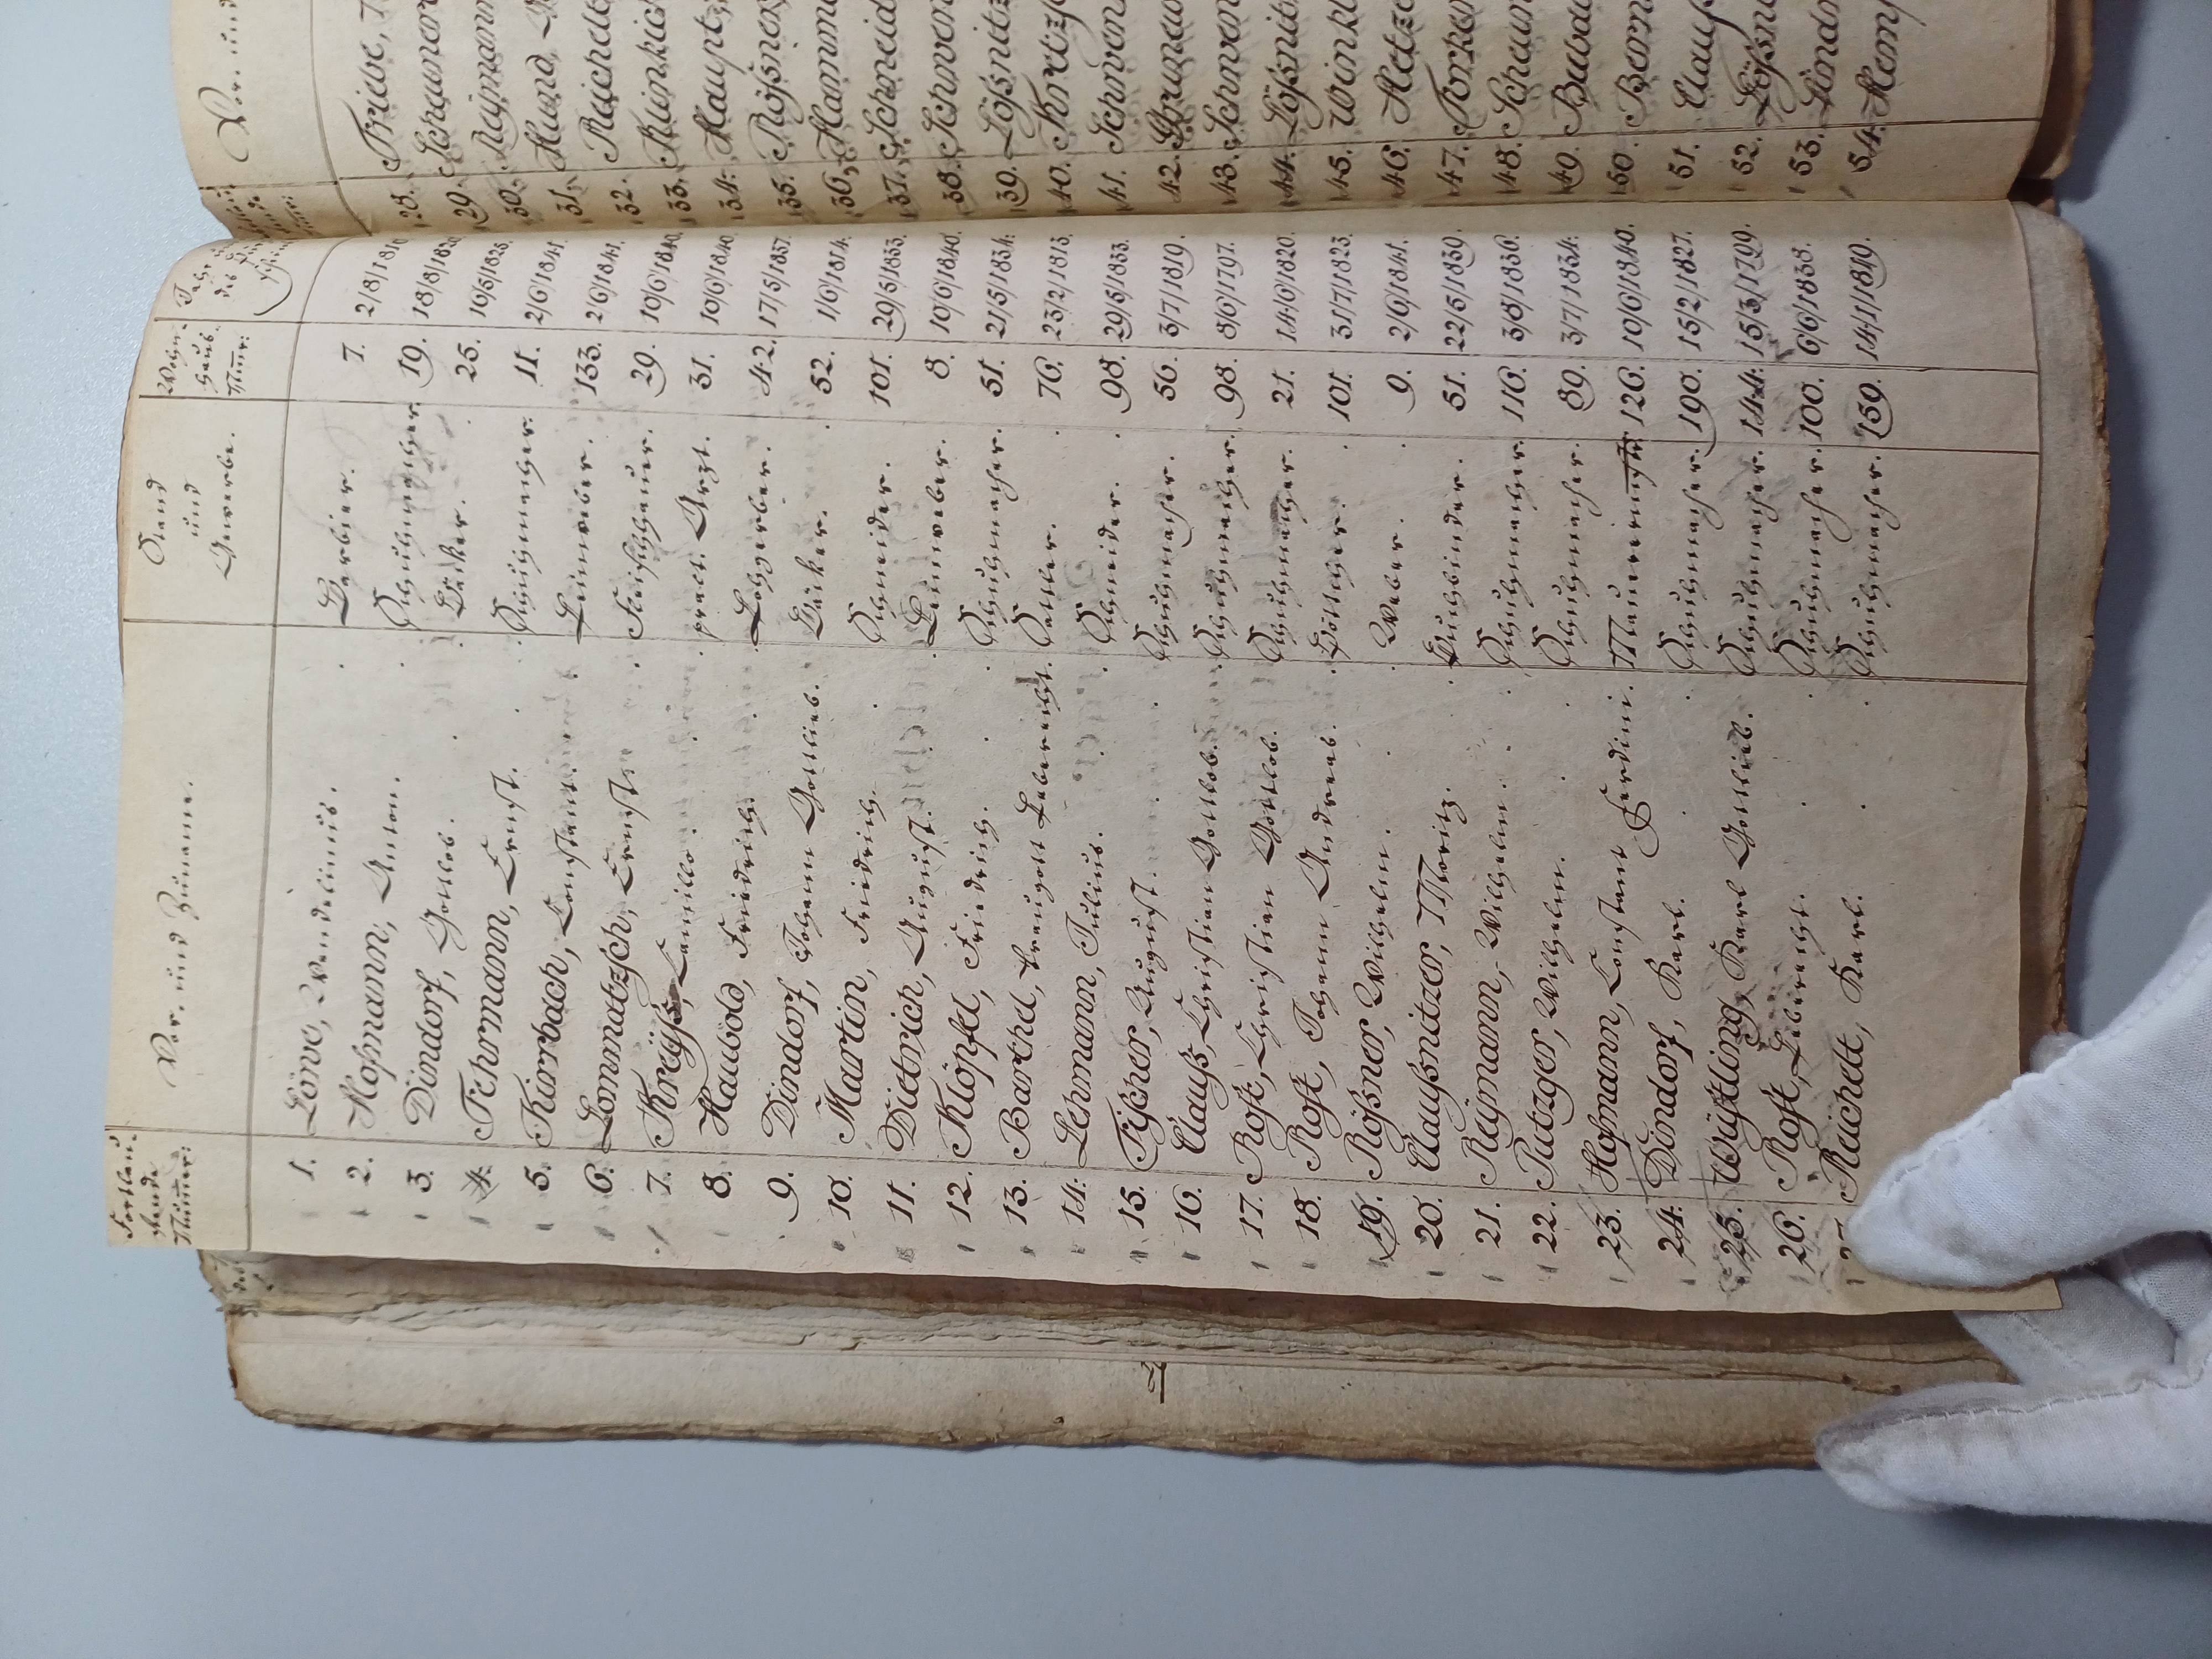 Fortlau-
fende
Num̄er:
Vor- und Zuname.
Stand
und
Gewerbe.
Wohn-
haus-
Num̄er:
1. Löwe, Wendelinus. Barbier. 7. 2/8/1816
2. Hofmann, Anton. Schuhmacher 19. 18/8/182
3. Dindorf, Gottlob. Bäcker. 25. 16/5/1825.
4. Tehrmann, Ernst. Schuhmacher. 11. 2/6/1841.
5. Kirrbach, Constant. Leinweber. 133. 2/6/1841.
6. Lommatzsch, Ernst. Fleischhauer. 29. 10/6/1840.
7. Kreÿß, Camillo. pract. Arzt. 31. 10/6/1840.
8. Haubold, Friedrich. Lohgerber. 42. 17/5/1837.
9. Dindorf, Johann Gottlieb. Bäcker. 52. 1/6/1814.
10. Martin, Friedrich. Schneider. 101. 29/5/1833.
11. Dietrich, August. Leinweber. 8. 10/6/1840.
12. Klöpfel, Friedrich. Schuhmacher. 51. 21/5/1834.
13. Barthel, Traugott Leberecht. Sattler. 76. 23/2/1813.
14. Lehmann, Julius. Schneider. 98. 29/5/1833.
15. Fischer, August. Schuhmacher. 56. 3/7/1819.
16. Clauß, Christian Gottlob. Schuhmacher. 98. 8/6/1797.
17. Rost, Christian Gottlob. Schuhmacher. 21. 14/6/1820.
18. Rost, Johann Andreas. Böttcher. 101. 31/7/1823.
19. Rößner, Wilhelm. Weber. 9. 2/6/1841.
20. Claußnitzer, Moritz. Buchbinder. 51. 22/5/1839.
21. Reÿmann, Wilhelm. Schuhmacher. 116. 3/8/1836.
22. Putzger, Wilhelm. Schuhmacher. 89. 3/7/1834.
23. Hofmann, Constant Ferdin. Maurermstr 126. 10/6/1840.
24. Dindorf, Karl. Schuhmacher. 190. 15/2/1827.
25. Wüstling, Karl Gottlieb. Schuhmacher. 144. 15/3/1799.
26. Rost, Lebrecht. Schuhmacher. 100. 6/6/1838.
Reichelt, Karl. Schuhmacher. 159. 14/1/1819.
Vor- und
28. Triebe,
29. Schauner
30. Reÿmann
31. Hund,
32. Reichelt
33. Künkich
34. Haupt,
35. Rößner
36. Hamm
37. Schneid
38. Schwen
39. Lößnitz
40. Kretzs
41. Schwen
42. Grunew
43. Schwen
44. Lößnit
45. Winkl
46. Hetze
47. Torker
48. Schaun
49. Buba
50. Bern
51. Clauß
52. Lößn
53. Lind
54. Hem